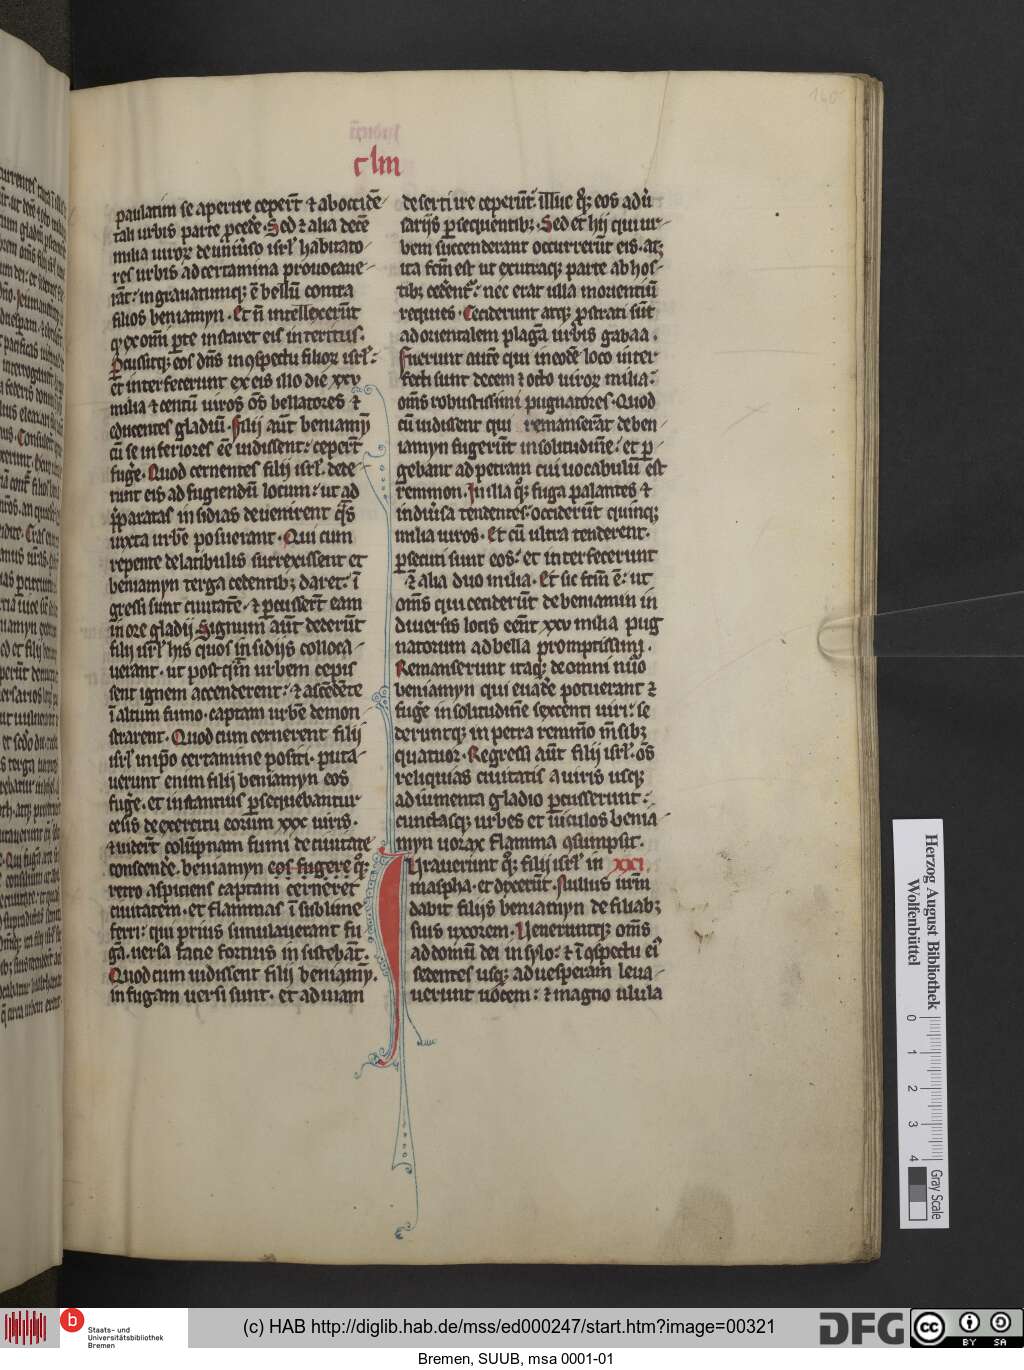 clm
paulatim se aperire ceperūt ⁊ ab occidē-
tali urbis parte ꝓcedē. Sed ⁊ alia decē
milia uiroꝝ de uniuso isrl habitato-
res urbis ad certamina prouocaue-
rāt: ingrauatumq; ē bellū contra
filios beniamyn. Et nō intellexerūt
qͥ ex omī pte instaret eis interitus.
Percussitq; eos dn̄s in ꝯspectu filioꝝ isrl:
et interfecerunt ex eis illo die xxv
milia ⁊ centū uiros om̄s bellatores ⁊
educentes gladiū. filij aūt beniamȳ
cū se inferiores eē uidissent: ceperūt
fugē. Quod cernentes filij isrl. dede-
runt eis ad fugiendū locum: ut ad
p̄paratas insidias deuenirent qͣs
iuxta urbē posuerant. Qui cum
repente de latibulis surrexissent et
beniamyn terga cedentib; daret: ī
gressi sunt ciuitatē. ⁊ ꝑcusserūt eam
in ore gladij. Signum aūt dederūt
filij isrl his quos in sidijs colloca-
uerant. ut postq̄m urbem cepis
sent ignem accenderent: ⁊ ascēdēte
ī altum fumo. captam urbē demon
strarent. Quod cum cernerent filij
isrl in ip̄o certamine positi. puta-
uerunt enim filij beniamyn eos
fugē. et instantius ꝑsequebantur
cesis de exercitu eorum xxx uiris.
⁊ uiderūt colūpnam fumi de ciuitate
conscendē. beniamyn eos fugere qͦꝫ
retro aspiciens captam cerneret
ciuitatem. et flammas ī sublime
ferri: qui prius simulauerant fu
gā. uersa facie fortius insistebāt.
Quod cum uidissent filij beniamȳ.
in fugam uersi sunt. et ad uiam
deserti ire ceperūt. illuc qͦꝫ eos adū
sarijs ꝑsequentib;. Sed et hij qui ur-
bem succenderant occurrerūt eis. atq;
ita fcm̄ est ut ex utraq; parte ab hos-
tib; cedent: nec erat ulla morientiū
requies. Ceciderunt atq; ꝓstrati sūt
ad orientalem plagā urbis gabaa.
fuerunt autē qui in eodē loco inter
fecti sunt decem ⁊ octo uiroꝝ milia:
om̄s robustissimi pugnatores. Quod
cū uidissent qui remanserāt de ben-
iamyn fugerūt in solitudinē: et ꝑ-
gebant ad petram cui uocabulū est
remmon. In illa qͦꝫ fuga palantes ⁊
in diuisa tendentes: occiderūt quinq;
milia uiros. Et cū ultra tenderent.
ꝑsecuti sunt eos: et interfecerunt
⁊ alia duo milia. Et sic fcm̄ ē: ut
om̄s qui ceciderūt de beniamin in
diuersis locis eēnt xxv milia pug
natorum ad bella promptissimi.
Remanserunt itaq; de omni nūo
beniamyn qui euadē potuerant ⁊
fugē in solitudinē sexcenti uiri: se
deruntq; in petra remmō m̄sib;
quatuor. Regressi aūt filij isrl. om̄s
reliquias ciuitatis a uiris usq;
ad iumenta gladio ꝑcusserunt:
cunctasq; urbes et uiculos benia-
myn uorax flamma ꝯsumpsit.
Iurauerunt qͦꝫ filij isrl in xxi
maspha. et dixerūt. Nullus nrm̄
dabit filijs beniamyn de filiab;
suis uxorem. Ueneruntq; om̄s
ad domū dei in sylo: ⁊ ī ꝯspectu eiꝰ
sedentes usq; ad uesperam leua-
uerunt uocem: ⁊ magno ulula
Herzog August Bibliothek
Wolfenbüttel
0 1 2 3 4
Gray Scale
b
Staats- und
Universitätsbibliothek
Bremen
(c) HAB http://diglib.hab.de/mss/ed000247/start.htm?image=00321
DFG
cc BY SA
Bremen, SUUB, msa 0001-01